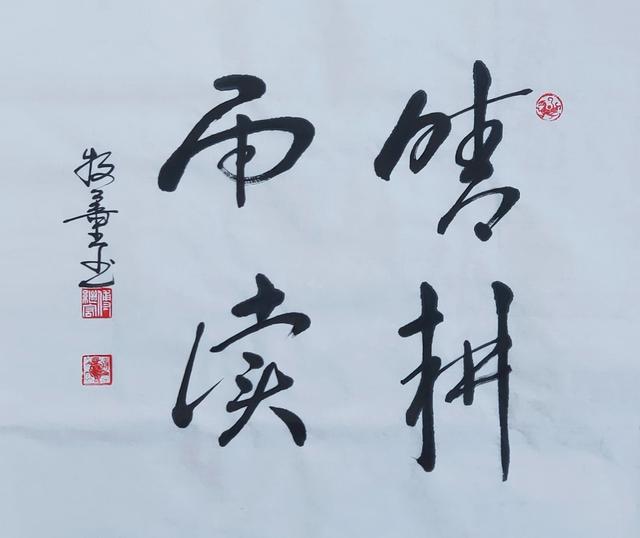 晴耕
雨读
牧童书